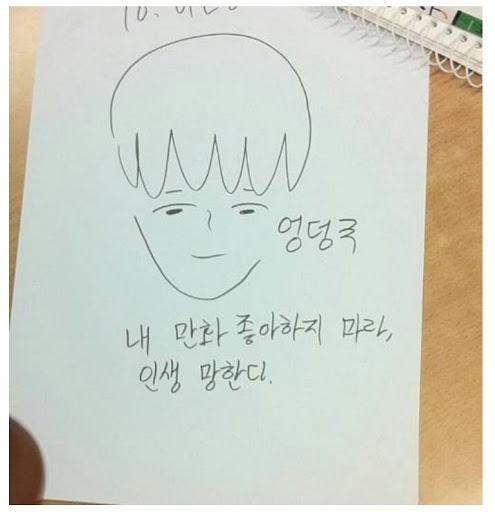 엉덩국
내 만화 좋아하지 마라,
인생 망한다.